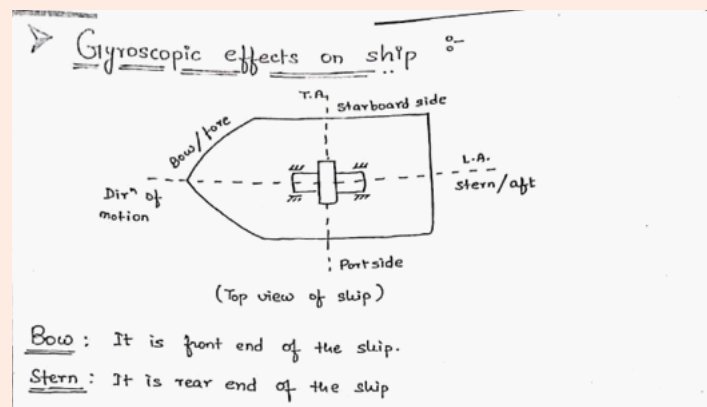 Gyroscopic effects on ship :-
T.A.
Starboard side
Bow/fore
L.A.
stern/aft
Dirⁿ of
motion
Port side
(Top view of ship)
Bow : It is front end of the ship.
Stern : It is rear end of the ship